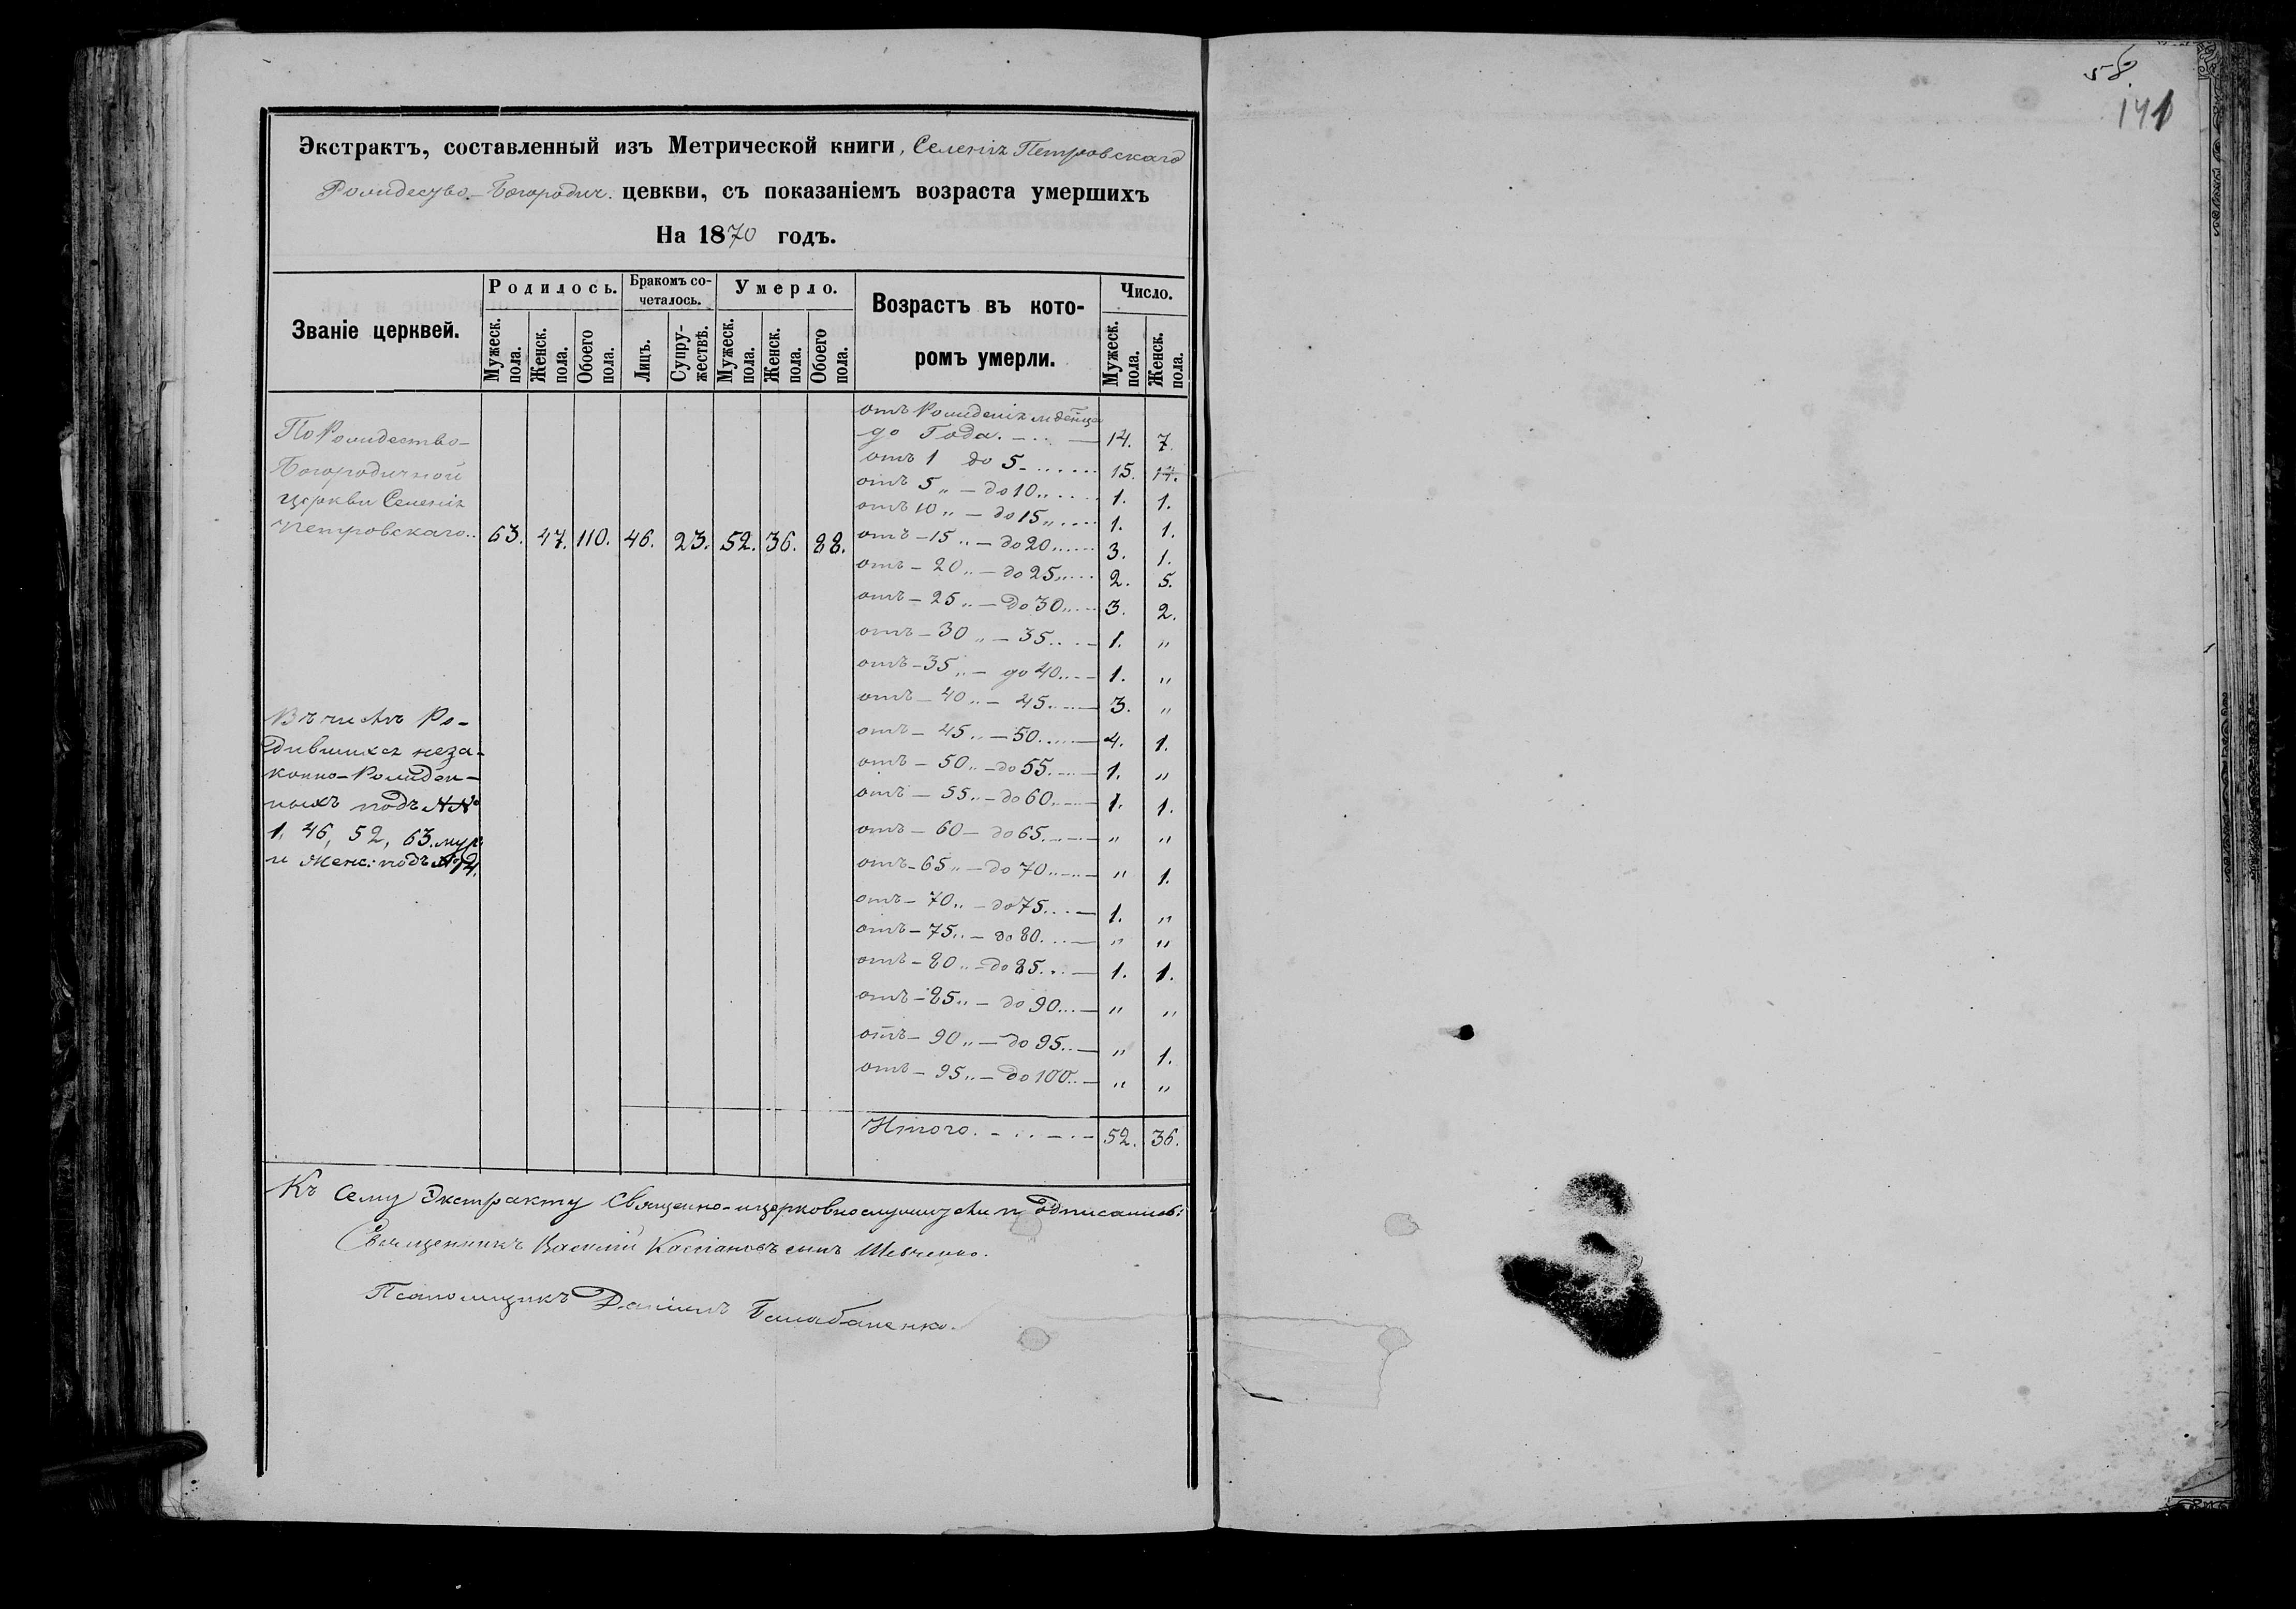 58.
141
Экстрактъ, составленный изъ Метрической книги, Селенія Петровскаго
Рождество-Богородич. цевкви, съ показаніемъ возраста умершихъ
На 1870 годъ.
Званіе церквей.
Родилось.
Бракомъ со-
четалось.
Умерло.
Возрастъ въ кото-
ромъ умерли.
Число.
Мужеск. пола.
Женск. пола.
Обоего пола.
Лицъ.
Супру-
жествѣ.
Мужеск. пола.
Женск. пола.
Обоего пола.
Мужеск. пола.
Женск. пола.
По Рождество-
Богородичной
церкви Селенія
Петровскаго.. 63. 47. 110. 46. 23. 52. 36. 88.
Въ числѣ Ро-
дившихся неза-
конно-Рожден-
ныхъ подъ №№
1. 46, 52, 63. муж.
и женс: подъ №
отъ Рожденія
до Года. 14. 7.
отъ 1 до 5 15. 14.
отъ 5 „ — до 10 „ 1. 1.
отъ 10 „ — до 15 „ 1. 1.
отъ — 15 „ — до 20 3. 1.
отъ — 20 „ — до 25 2. 5.
отъ — 25 „ — до 30 3. 2.
отъ — 30 „ — 35 1. „
отъ — 35 „ — до 40 1. „
отъ — 40 „ — 45 3. „
отъ — 45 „ — 50 4. 1.
отъ — 50 „ — до 55 1. „
отъ — 55 „ — до 60 1. 1.
отъ — 60 — до 65 „ „
отъ — 65 „ — до 70 „ 1.
отъ — 70 „ — до 75 1. „
отъ — 75 „ — до 80 „ „
отъ — 80 „ — до 85 1. 1.
отъ — 85 „ — до 90 „ „
отъ — 90 „ — до 95 „ 1.
отъ — 95 „ — до 100 „ „
Итого. 52. 36.
Къ сему Экстракту Священно-и церковнослужители подписались:
Священникъ Василій Касіановъ сынъ Шевченко.
Псаломщикъ Даніилъ Балабаненко.